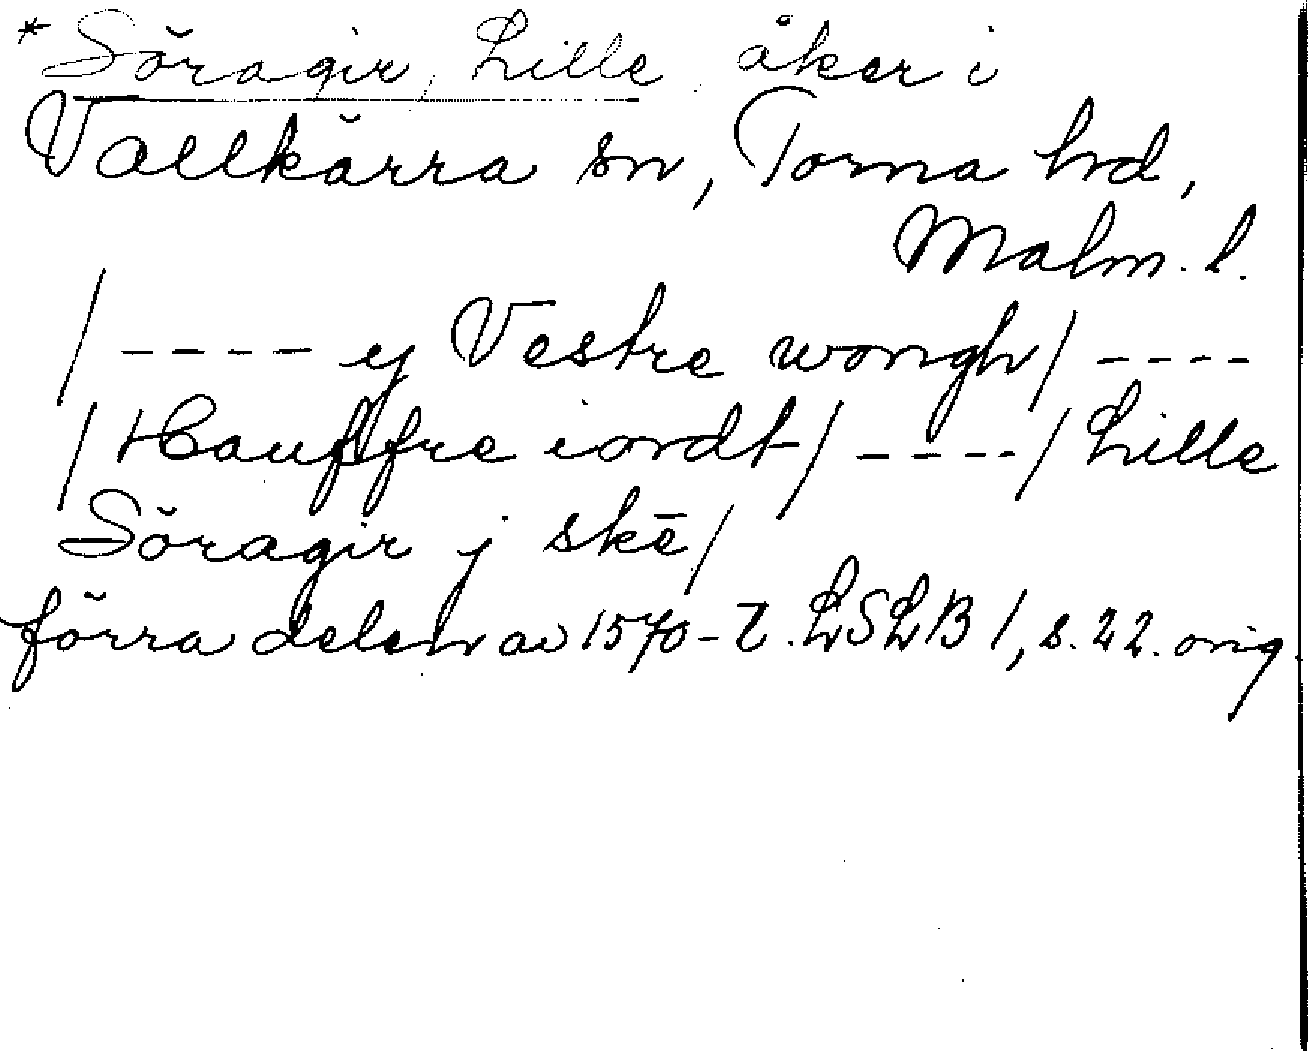 *Söragir, Lille åker i
Vallkärra sn, Torna hd,
Malm. l.
/ ---- ej Vestre wongh / ----
/ Hauffre iordt / ---- / Lille
Söragir j skē /
förra delen av 1570-t. LSLB 1, s. 22. orig.